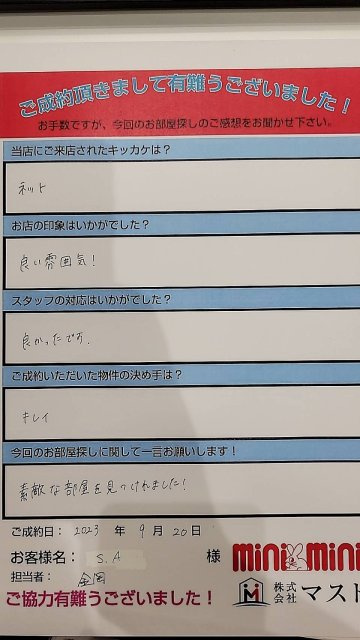 ご成約頂きまして有難うございました！
お手数ですが、今回のお部屋探しのご感想をお聞かせ下さい。
当店にご来店されたキッカケは？
ネット
お店の印象はいかがでした？
良い雰囲気！
スタッフの対応はいかがでした？
良かったです.
ご成約いただいた物件の決め手は？
キレイ
今回のお部屋探しに関して一言お願いします！
素敵な部屋を見つけれました！
ご成約日： 2023 年 9 月 20日
お客様名： S.A 様
担当者： 金岡
mini mini
株式会社 マスト
ご協力有難うございました！